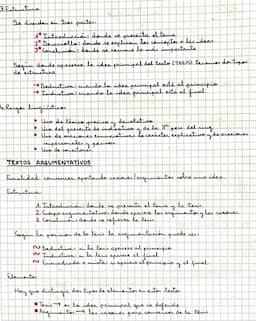 Estructura
Se dividen en tres partes:
1ª Introducción: donde se presenta el tema
2ª Desarrollo: donde se explican los conceptos o las ideas
3ª Conclusión: donde se resume lo más importante
Según donde aparezca la idea principal del texto (TESIS) tenemos dos tipos
de estructura
→ Deductiva: cuando la idea principal está al principio
→ Inductiva: cuando la idea principal está al final
Rasgos lingüísticos
Uso de léxico preciso y denotativo
Uso del presente de indicativo y de la 3ª pers del sing
Uso de oraciones enunciativas de carácter explicativo y de oraciones
impersonales y pasivas
Uso de conectores
TEXTOS ARGUMENTATIVOS
Finalidad: convencer aportando razones/argumentos sobre una idea
Estructura
1. Introducción: donde se presenta el tema y la tesis
2. Cuerpo argumentativo: donde aparecen los argumentos y las razones
3. Conclusión: donde se refuerza la tesis
Según la posición de la tesis la argumentación puede ser:
Deductiva: si la tesis aparece al principio
Inductiva: si la tesis aparece al final
Encuadrada o mixta: si aparece al principio y al final
Elementos
Hay que distinguir dos tipos de elementos en estos textos
Tesis → es la idea principal que se defiende
Argumentos → las razones para convencer de la tesis